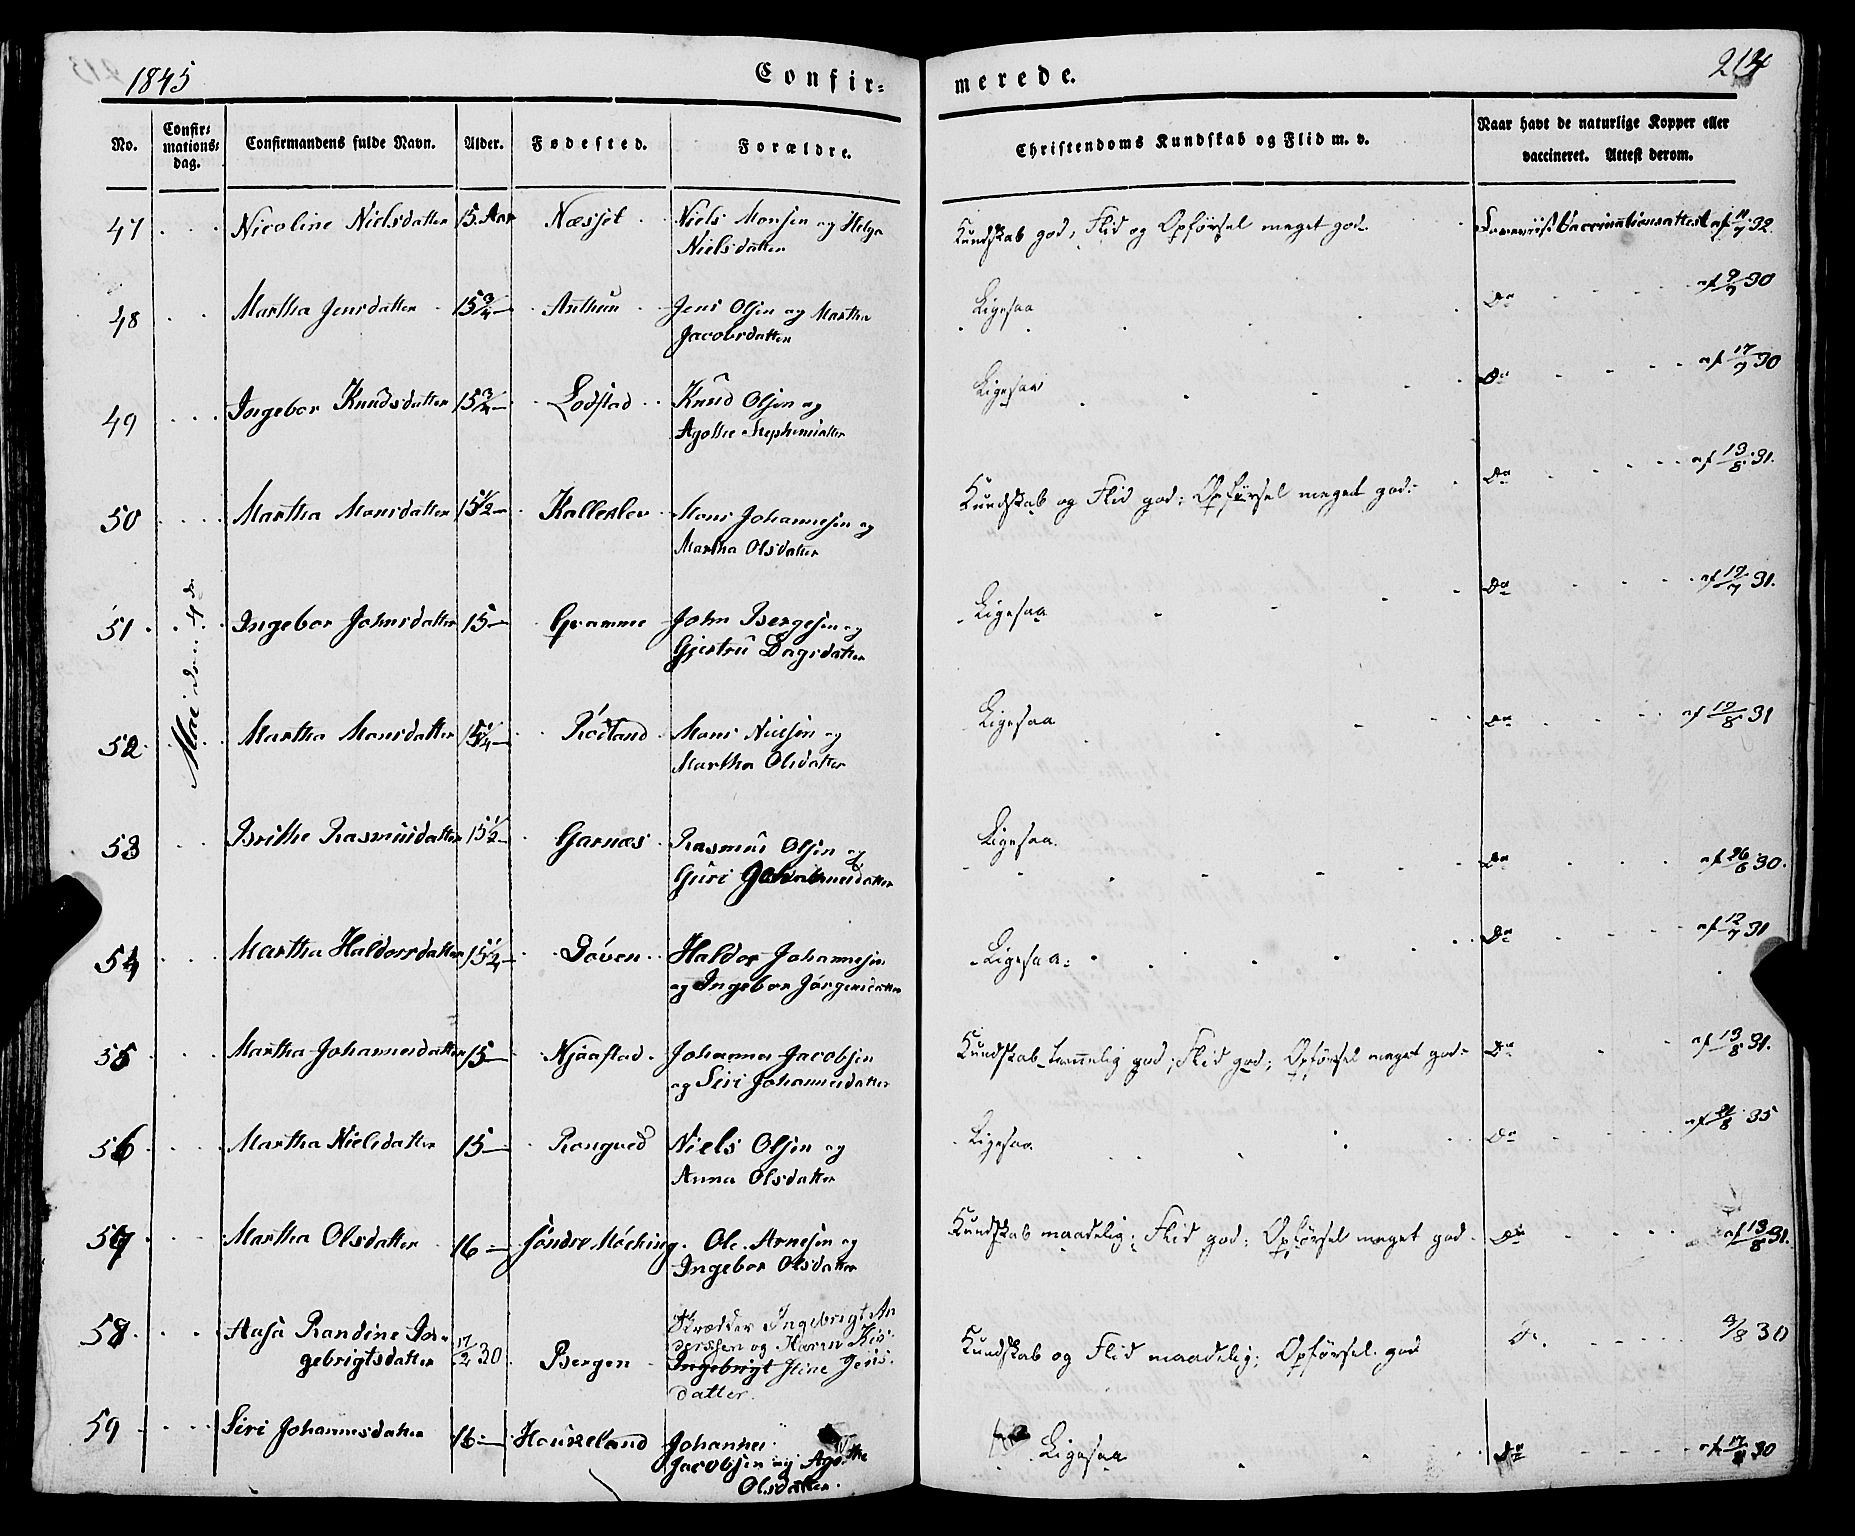 1845
Confir-
merede.
214
No.
Confir-
mations-
dag.
Confirmandens fulde Navn.
Alder.
Fødested.
Forældre.
Christendoms Kundskab og Flid m. v.
Naar havt de naturlige Kopper eller
vaccineret. Attest derom.
Mai den 4de
47 Nicoline Nielsdatter 15 Aar Næsset Niels Monsen og Helga
Nielsdatter
Kundskab god, Flid og Opførsel meget god. Vaccinationsattest af 11/7 32
48 Martha Jensdatter 15 3/4 Anthun Jens Olsen og Martha
Jacobsdatter
Ligesaa Do af 9/7 30
49 Ingebor Knudsdatter 15 3/4 Lodstad Knud Olsen og
Agathe Stephensdatter
Ligesaa Do af 17/7 30
50 Martha Monsdatter 15 1/2 Kalleklev Mons Johannesen og
Martha Olsdatter
Kundskab og Flid god; Opførsel meget god. Do af 13/8 31.
51 Ingebor Johnsdatter 15 Gramme John Bergesen og
Gjertru Dagsdatter
Ligesaa Do af 12/7 31.
52 Martha Monsdatter 15 1/4 Røstand Mons Nielsen og
Martha Olsdatter
Ligesaa Do af 12/8 31
53 Brithe Rasmusdatter 15 1/2 Garnæs Rasmus Olsen og
Guri Johannesdatter
Ligesaa. Do af 26/6 30.
54 Martha Haldorsdatter 15 1/2 Døven Haldor Johannesen
og Ingebor Jørgensdatter
Ligesaa. Do af 12/7 31
55 Martha Johannesdatter 15 Njaastad Johannes Jacobsen
og Siri Johannesdatter
Kundskab temelig god; Flid god; Opførsel meget god Do af 13/8 31.
56 Martha Nielsdatter 15 Rongved Niels Olsen og
Anna Olsdatter
Ligesaa Do 35
57 Martha Olsdatter 16 Søndre Møcking Ole Arnesen og
Ingebor Olsdatter
Kundskab maadelig; Flid god; Opførsel meget god Do af 13/8 31.
58 Aasa Randine In-
gebrigtsdatter 17/2 30 Bergen
Skrædder Ingebrigt An
derssen og Karen Kir-
Ingebrigt stine Jens-
datter.
Kundskab og Flid maadelig; Opførsel god 30
59 Siri Johannesdatter 16 Houkeland Johannes
Jacobsen og Agathe
Olsdatter.
Ligesaa Do 30